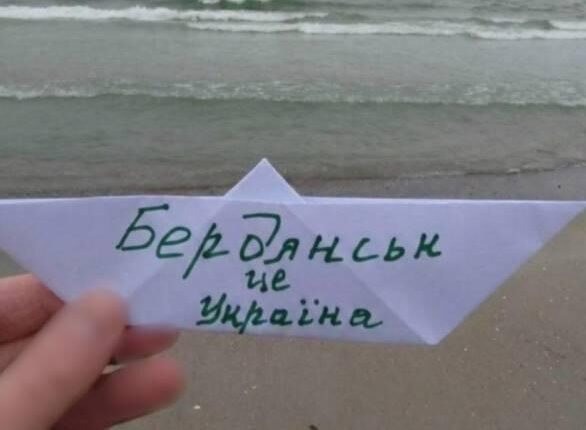 Бердянськ
це
Україна